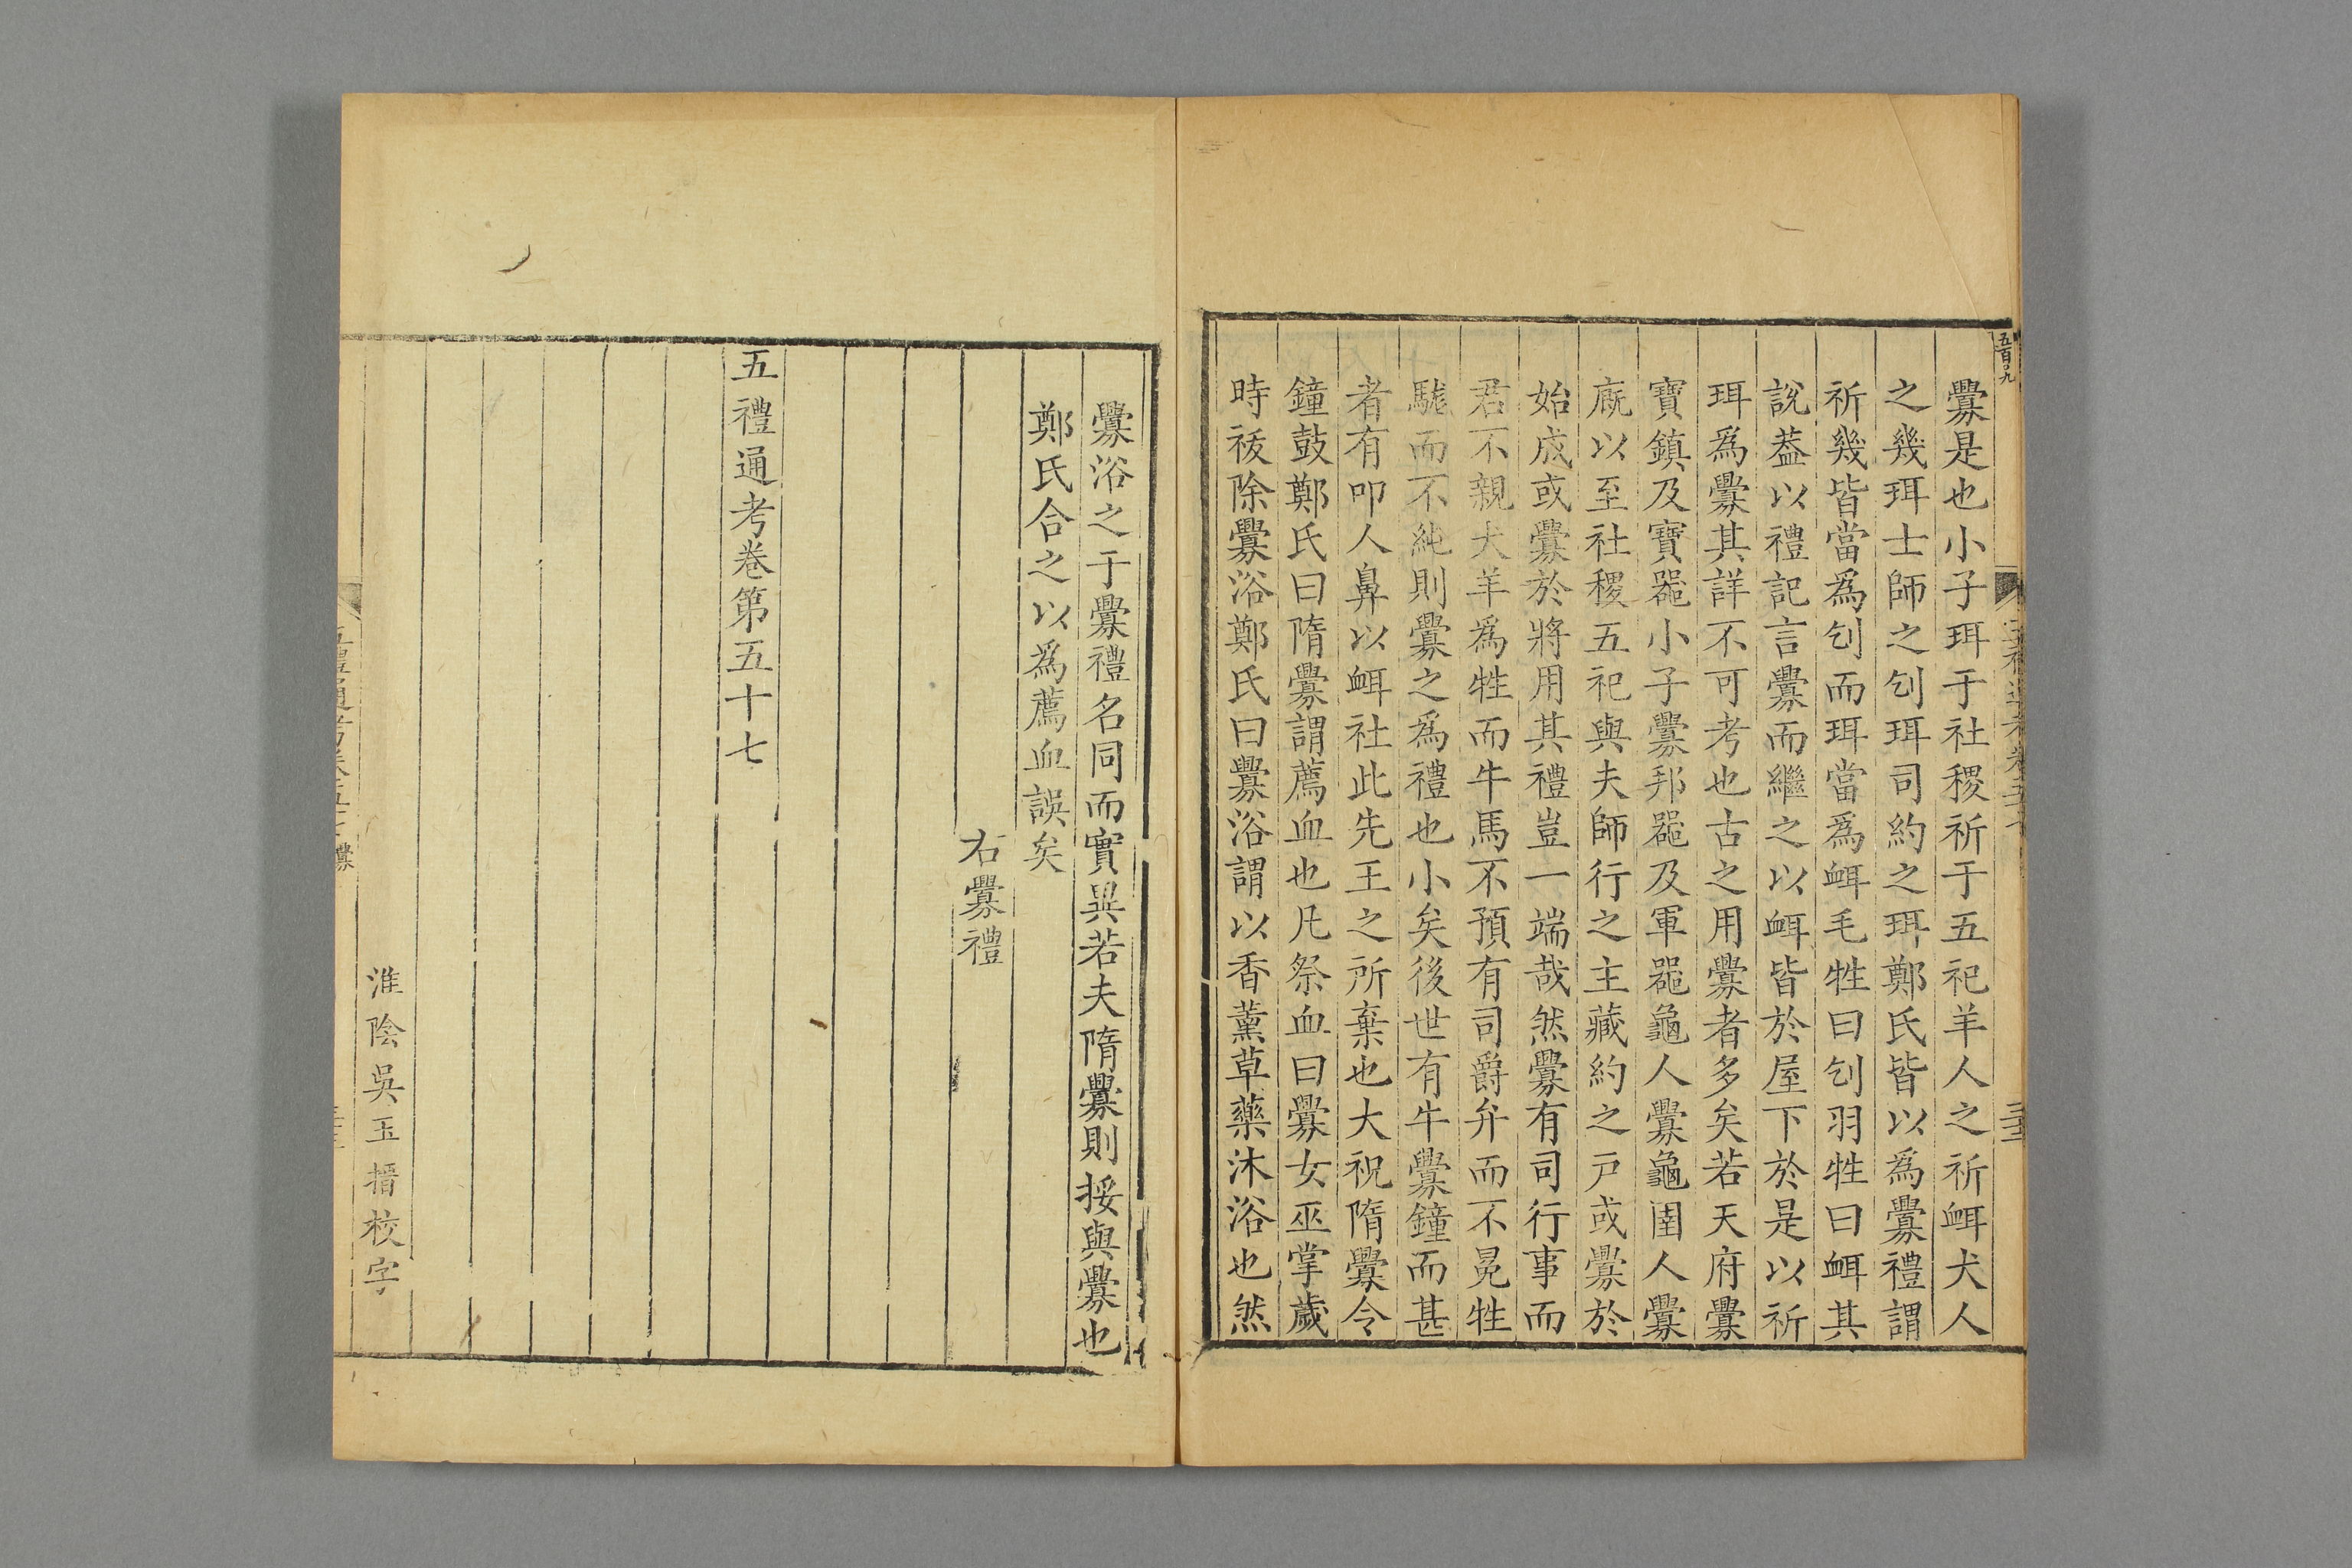 釁是也小子珥于社稷祈于五祀羊人之祈衈犬人
之幾珥士師之刉珥司約之珥鄭氏皆以為釁禮謂
祈幾皆當為刉而珥當為衈毛牲曰刉羽牲曰衈其
說葢以禮記言釁而繼之以衈皆於屋下於是以祈
珥為釁其詳不可考也古之用釁者多矣若天府釁
寶鎮及寶器小子釁邦器及軍器龜人釁龜圉人釁
廐以至社稷五祀與夫師行之主藏約之戸或釁於
始成或釁於將用其禮豈一端哉然釁有司行事而
君不親犬羊為牲而牛馬不預有司爵弁而不冕牲
駹而不純則釁之為禮也小矣後世有牛釁鐘而甚
者有叩人鼻以衈社此先王之所棄也大祝隋釁令
鐘鼓鄭氏曰隋釁謂薦血也凡祭血曰釁女巫掌歲
時祓除釁浴鄭氏曰釁浴謂以香薰草藥沐浴也然
釁浴之于釁禮名同而實異若夫隋釁則挼與釁也
鄭氏合之以為薦血誤矣
右釁禮
五禮通考卷第五十七
淮陰吳玉搢校字